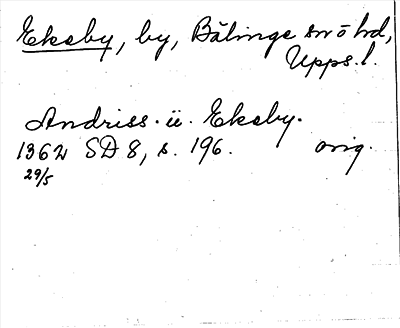 Ekeby, by, Bälinge sn o hd,
Upps. l.
Andriss. ü. Ekeby.
1362 SD 8, s. 196. orig.
29/5